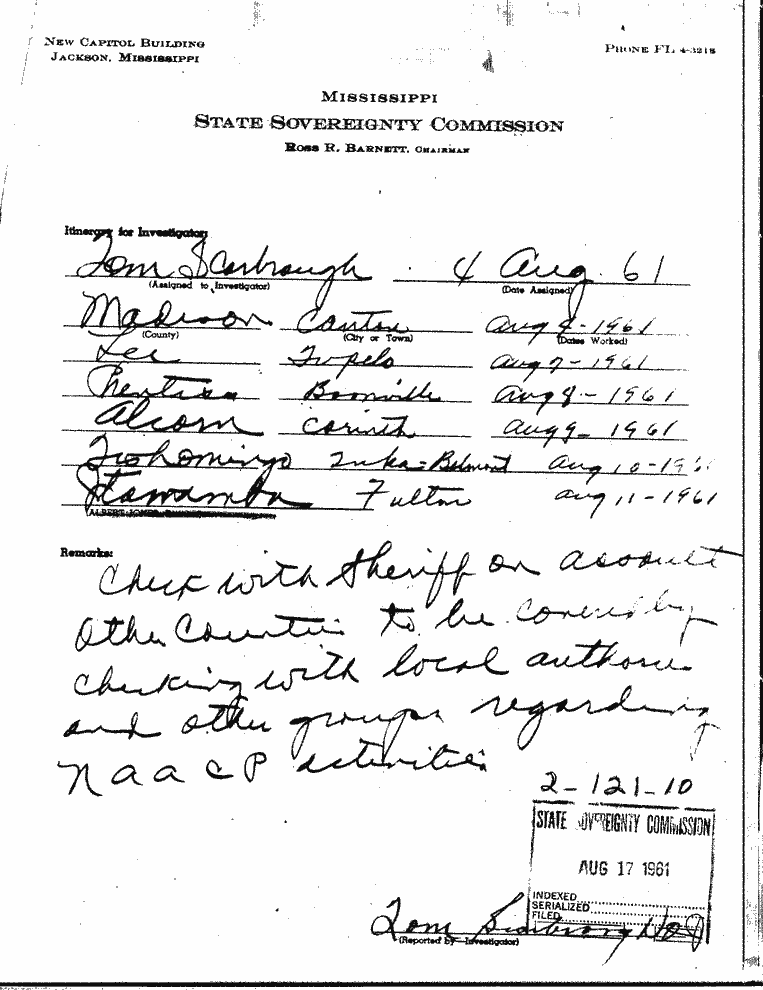 NEW CAPITOL BUILDING
JACKSON, MISSISSIPPI
PHONE FL 4-3218
MISSISSIPPI
STATE SOVEREIGNTY COMMISSION
ROSS R. BARNETT, CHAIRMAN
Itinerary for Investigator:
Tom Scarbrough 4 Aug. 61
(Assigned to Investigator) (Date Assigned)
Madison Canton Aug 4-1961
(County) (City or Town) (Dates Worked)
Lee Tupelo Aug 7-1961
Prentiss Booneville Aug 8-1961
Alcorn Corinth Aug 9-1961
Tishomingo Iuka-Belmont Aug 10-1961
Itawamba Fulton Aug 11-1961
Remarks:
Check with Sheriff on assault
Other Counties to be covered by
checking with local
and other groups regarding
NAACP activities
2-121-10
STATE SOVEREIGNTY COMMISSION
AUG 17 1961
INDEXED
SERIALIZED
FILED
Tom Scarbrough
(Reported by Investigator)